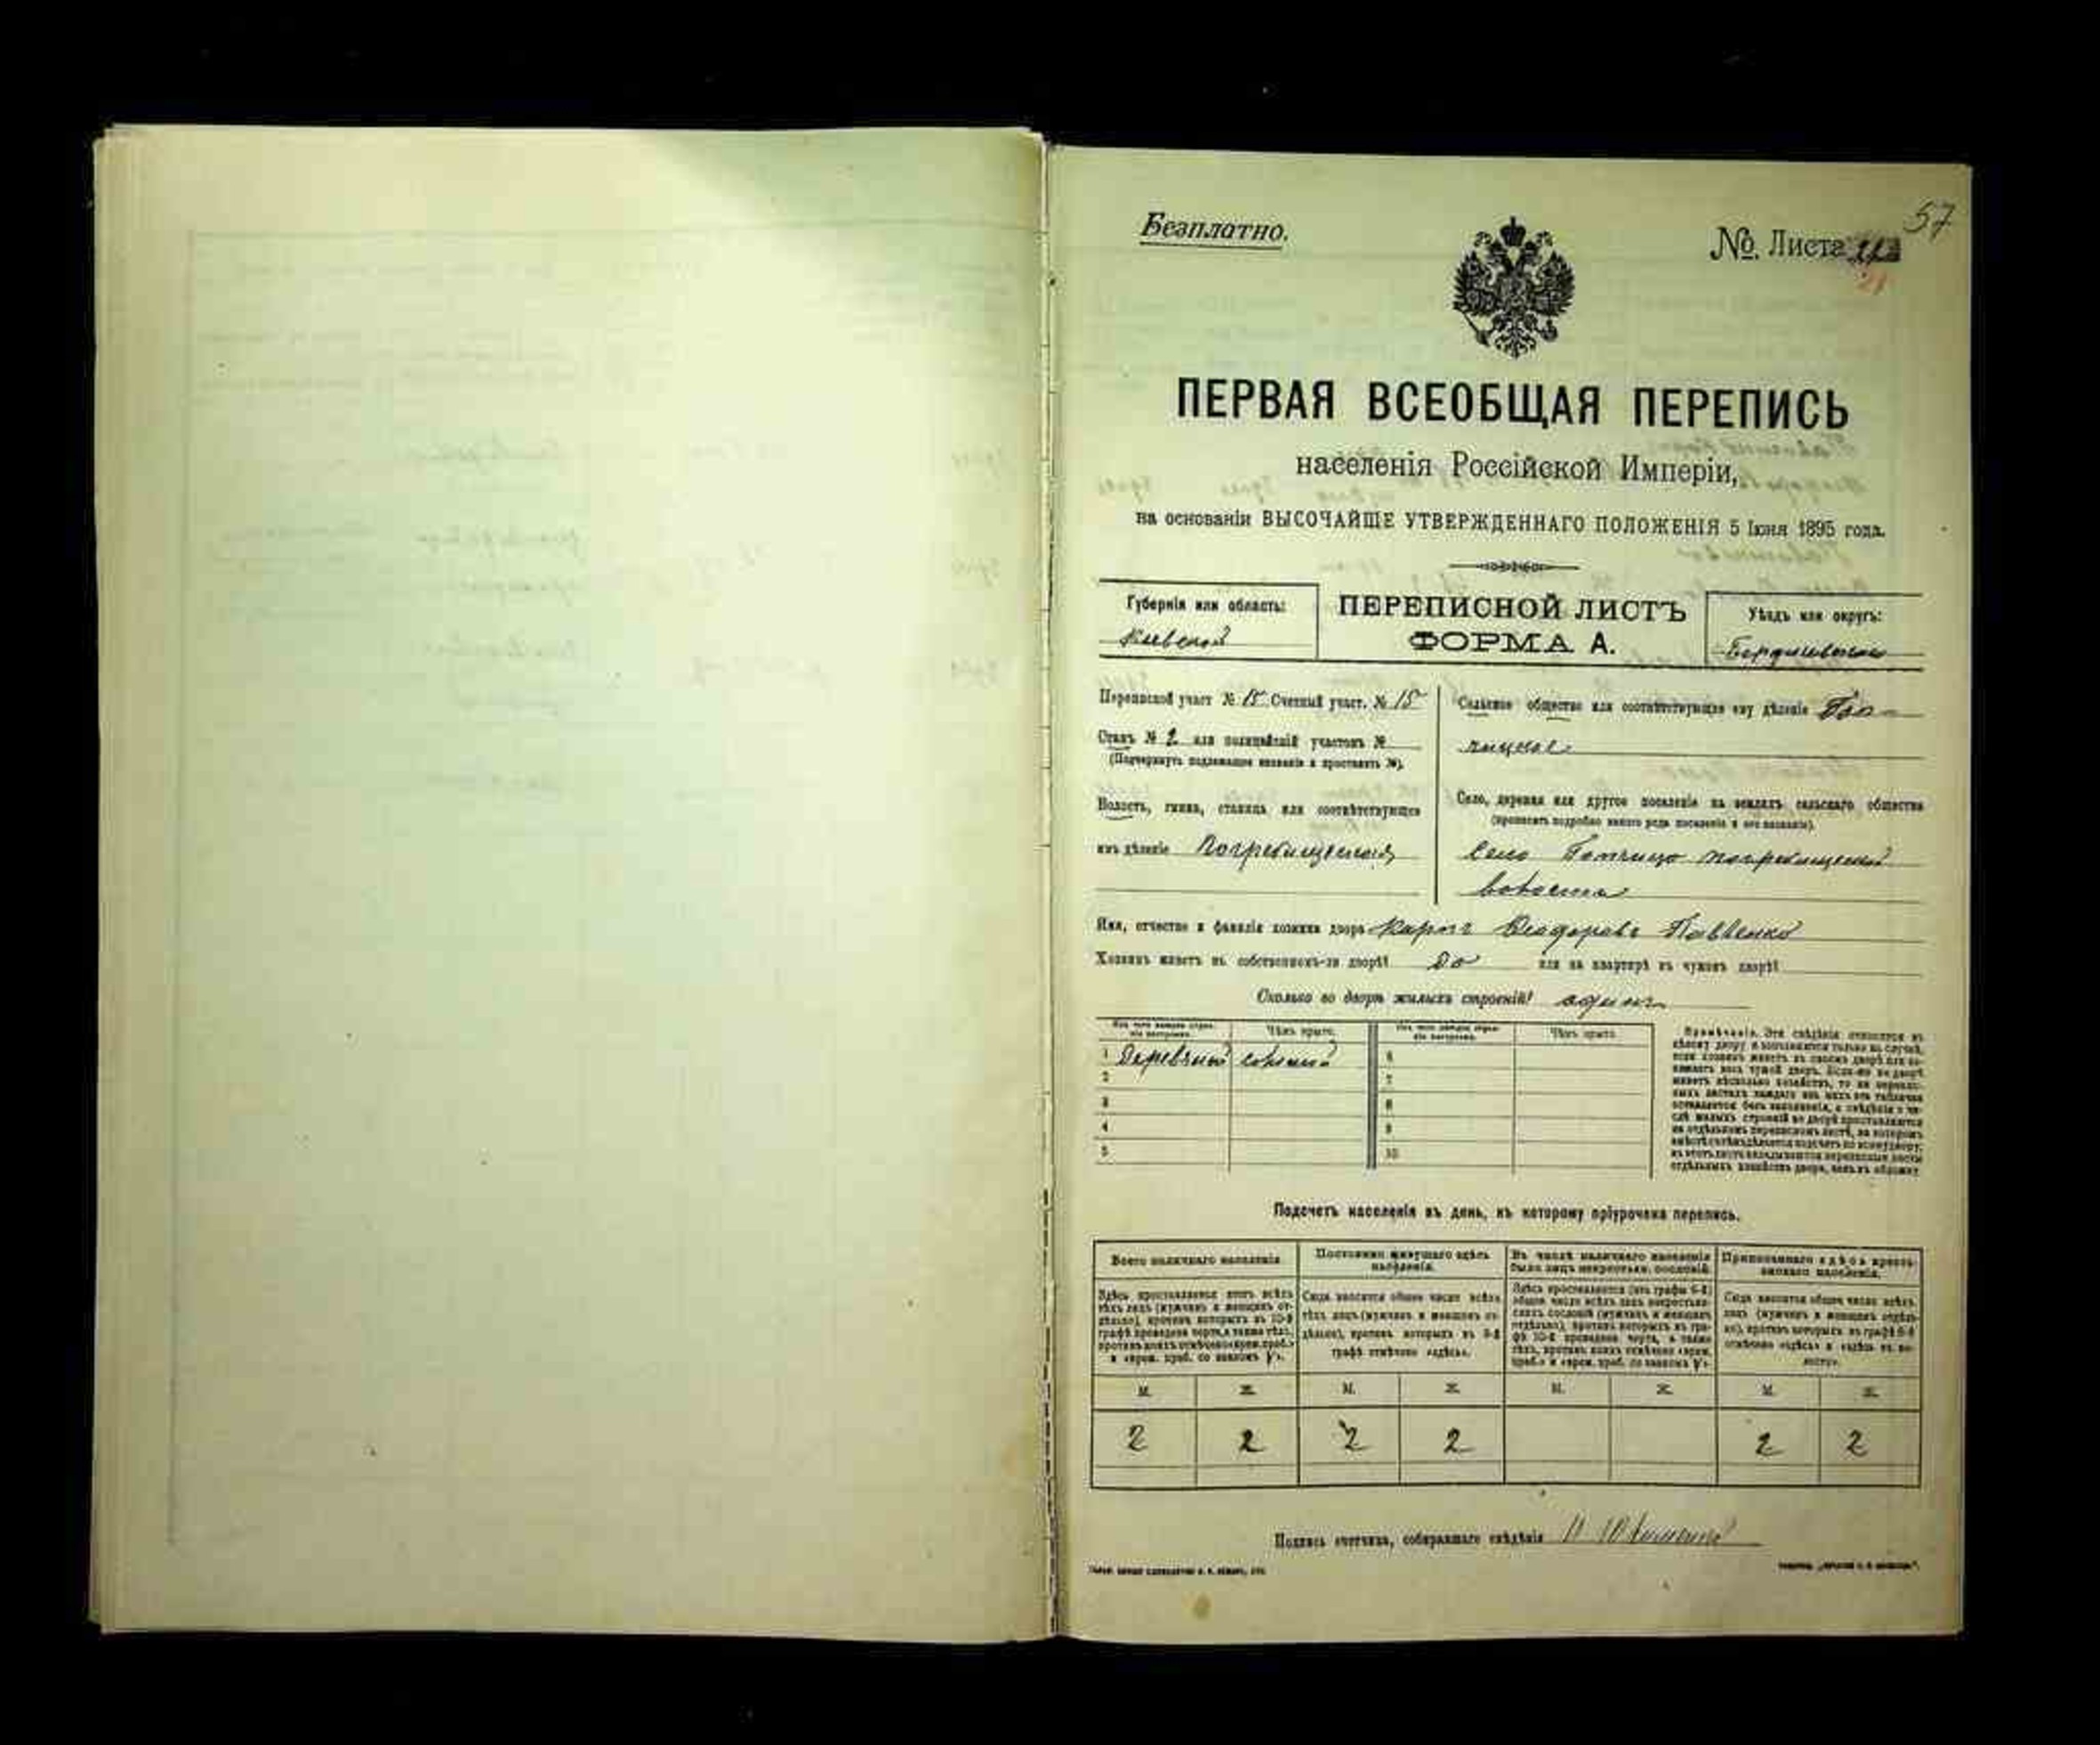 57
Безплатно.
№. Листа
21
ПЕРВАЯ ВСЕОБЩАЯ ПЕРЕПИСЬ
населенія Россійской Имперіи,
на основаніи ВЫСОЧАЙШЕ УТВЕРЖДЕННАГО ПОЛОЖЕНІЯ 5 Іюня 1895 года.
Губернія или область:
Кіевской
ПЕРЕПИСНОЙ ЛИСТЪ
ФОРМА А.
Уѣздъ или округъ:
Бердичевскій
Переписной участ № 15 Счетный участ. № 15
Станъ № 2 или полицейскій участокъ №
(Подчеркнуть подлежащее названіе и проставить №).
Волость, гмина, станица или соотвѣтствующее
имъ дѣленіе Погребищенская
Сельское общество или соотвѣтствующее ему дѣленіе Гоп-
чицкое
Село, деревня или другое поселеніе на земляхъ сельскаго общества
(прописать подробно какого рода поселеніе и его названіе).
Село Гопчицо погребищенской
волости
Имя, отчество и фамилія хозяина двора Карпъ Феодоровъ Павленко
Хозяинъ живетъ въ собственномъ-ли дворѣ? да или на квартирѣ въ чужомъ дворѣ?
Сколько во дворѣ жилыхъ строеній? одинъ
Изъ чего каждое строеніе построено. Чѣмъ крыто. Изъ чего каждое строеніе построено. Чѣмъ крыто.
1 Деревяный соломой 6
2 7
3 8
4 9
5 10
Примѣчаніе. Эти свѣдѣнія относятся къ
цѣлому двору и заполняются только въ случаѣ,
если хозяинъ живетъ въ своемъ дворѣ или за-
нимаетъ весь чужой дворъ. Если-же во дворѣ
живетъ нѣсколько хозяйствъ, то на перепис-
ныхъ листахъ каждаго изъ нихъ эта табличка
оставляется безъ заполненія, а свѣдѣнія о чи-
слѣ жилыхъ строеній во дворѣ проставляются
на отдѣльномъ переписномъ листѣ, на которомъ
вмѣстѣ съ тѣмъ дѣлается подсчетъ по всему двору;
въ этотъ листъ вкладываются переписные листы
отдѣльныхъ хозяйствъ двора, какъ въ обложку.
Подсчетъ населенія въ день, къ которому пріурочена перепись.
Всего наличнаго населенія.
Здѣсь проставляется итогъ всѣхъ
тѣхъ лицъ (мужчинъ и женщинъ от-
дѣльно), противъ которыхъ въ 10-й
графѣ проведена черта, а также тѣхъ,
противъ коихъ отмѣчено «врем. преб.»
и «врем. преб. со знакомъ V».
Постоянно живущаго здѣсь
населенія.
Сюда вносится общее число всѣхъ
тѣхъ лицъ (мужчинъ и женщинъ от-
дѣльно), противъ которыхъ въ 9-й
графѣ отмѣчено «здѣсь».
Въ числѣ наличнаго населенія
было лицъ некрестьян. сословій.
Здѣсь проставляется (изъ графы 6-й)
общее число всѣхъ лицъ некрестьян-
скихъ сословій (мужчинъ и женщинъ
отдѣльно), противъ которыхъ въ гра-
фѣ 10-й проведена черта, а также
тѣхъ, противъ коихъ отмѣчено «врем.
преб.» и «врем. преб. со знакомъ V».
Приписаннаго здѣсь кресть-
янскаго населенія.
Сюда вносится общее число всѣхъ
лицъ (мужчинъ и женщинъ отдѣль-
но), противъ которыхъ въ графѣ 8-й
отмѣчено «здѣсь» и «здѣсь въ во-
лости».
М. Ж. М. Ж. М. Ж. М. Ж.
2 2 2 2 2 2
Подпись счетчика, собиравшаго свѣдѣнія